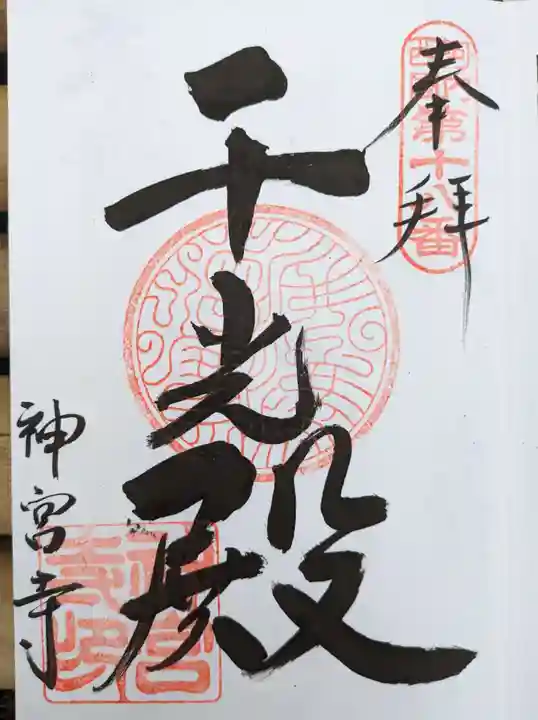 奉拝
第十八番
千光殿
神宮寺